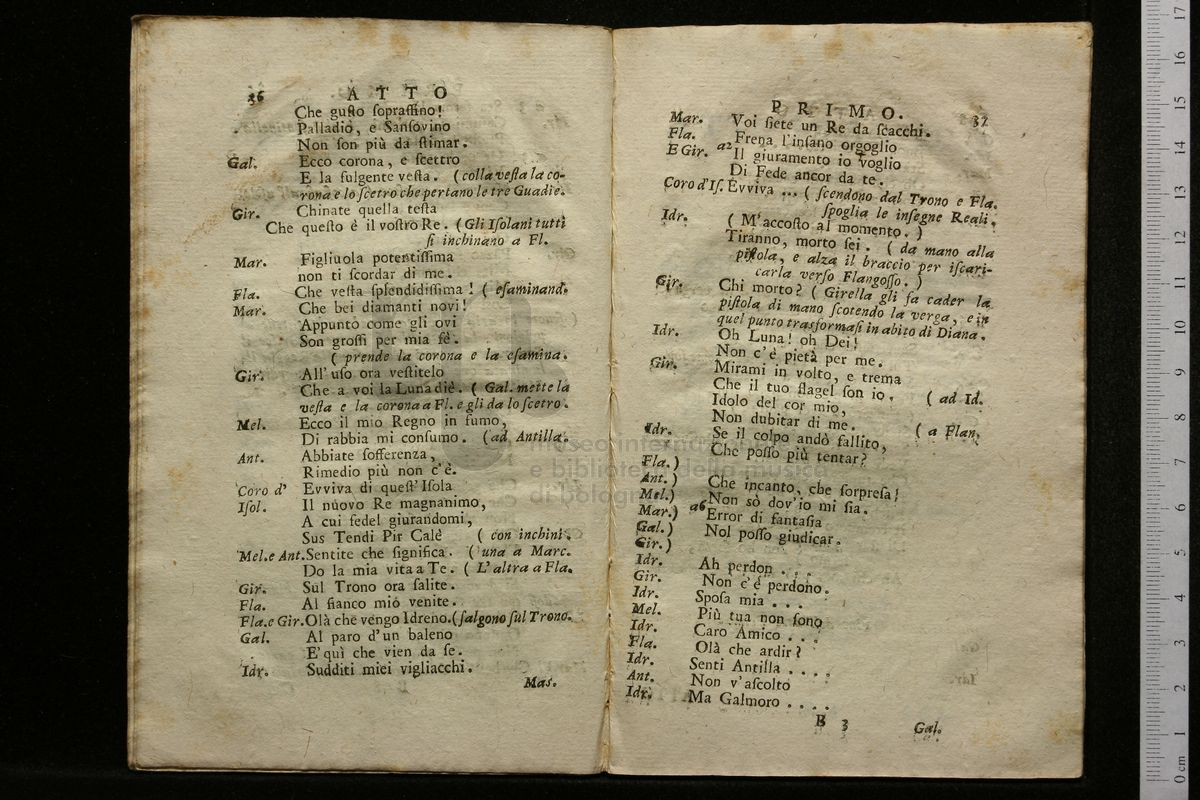 36 ATTO
Che gusto sopraffino!
Palladio, e Sansovino
Non son più da stimar.
Gal. Ecco corona, e scettro
E la fulgente vesta. (colla vesta la co-
rona e lo scetro che pertano le tre Guadie.
Gir. Chinate quella testa
Che questo è il vostro Re. (Gli Isolani tutti
si inchinano a Fl.
Mar. Figliuola potentissima
non ti scordar di me.
Fla. Che vesta splendidissima! (esaminand.
Mar. Che bei diamanti novi!
Appunto come gli ovi
Son grossi per mia fè.
(prende la corona e la esamina.
Gir. All'uso ora vestitelo
Che a voi la Luna diè. (Gal. mette la
vesta e la corona a Fl. e gli da lo scetro.
Mel. Ecco il mio Regno in fumo,
Di rabbia mi consumo. (ad Antilla.
Ant. Abbiate sofferenza,
Rimedio più non c'è.
Coro d' Evviva di quest'Isola
Isol. Il nuovo Re magnanimo,
A cui fedel giurandomi,
Sus Tendi Pir Calè (con inchini.
Mel. e Ant. Sentite che significa. (una a Marc.
Do la mia vita a Te. (L'altra a Fla.
Gir. Sul Trono ora salite.
Fla. Al fianco mio venite.
Fla. e Gir. Olà che vengo Idreno. (salgono sul Trono.
Gal. Al paro d'un baleno
E' quì che vien da se.
Idr. Sudditi miei vigliacchi.
Mas.
PRIMO. 37
Mar. Voi siete un Re da scacchi.
Fla. Frena l'insano orgoglio
E Gir. a2 Il giuramento io voglio
Di Fede ancor da te.
Coro d'Is. Evviva ... (scendono dal Trono e Fla.
spoglia le insegne Reali.
Idr. (M'accosto al momento.)
Tiranno, morto sei. (da mano alla
pistola, e alza il braccio per iscari-
carla verso Flangosso.)
Gir. Chi morto? (Girella gli fa cader la
pistola di mano scotendo la verga, e in
quel punto trasformasi in abito di Diana.
Idr. Oh Luna! oh Dei!
Non c'è pietà per me.
Gir. Mirami in volto, e trema
Che il tuo flagel son io. (ad Id.
Idolo del cor mio,
Non dubitar di me. (a Flan.
Idr. Se il colpo andò fallito,
Che posso più tentar?
Fla.)
Ant.) Che incanto, che sorpresa!
Mel.) Non sò dov'io mi sia.
Mar.) a6 Error di fantasia
Gal.) Nol posso giudicar.
Gir.)
Idr. Ah perdon . . .
Gir. Non c'è perdono.
Idr. Sposa mia . . .
Mel. Più tua non sono
Idr. Caro Amico . . .
Fla. Olà che ardir?
Idr. Senti Antilla . . . .
Ant. Non v'ascolto
Idr. Ma Galmoro . . . .
B 3 Gal.
museo internazionale
e biblioteca della musica
di bologna